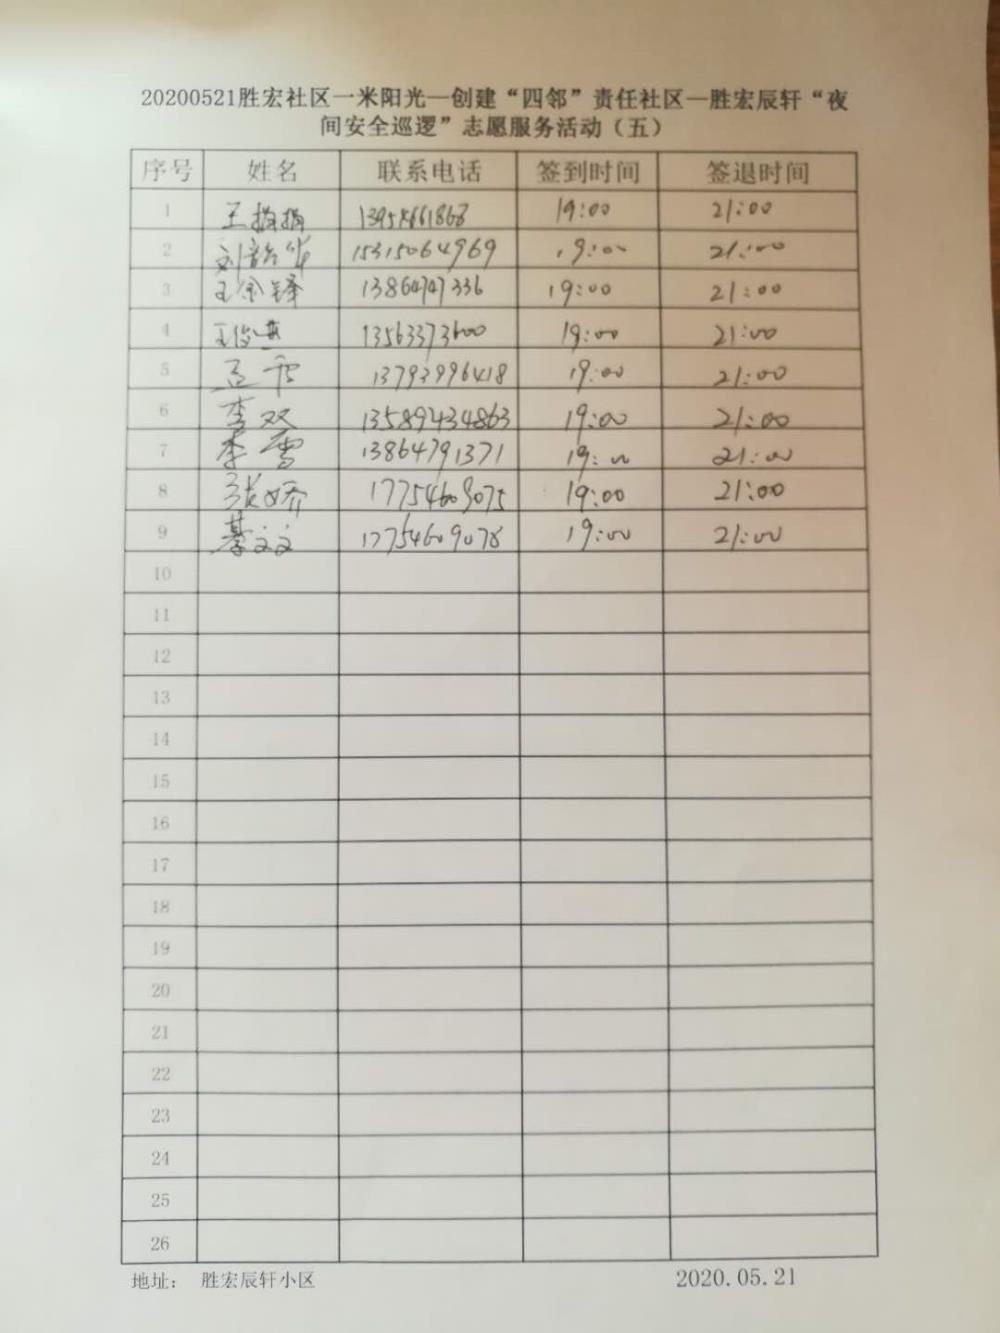 20200521胜宏社区一米阳光—创建“四邻”责任社区—胜宏辰轩“夜
间安全巡逻”志愿服务活动（五）
序号 姓名 联系电话 签到时间 签退时间
1 王 19:00 21:00
2 刘 华 15315064969 19:00 21:00
3 王金锋 13864747336 19:00 21:00
4 王俊英 13563373600 19:00 21:00
5 孟雪 13793996418 19:00 21:00
6 李双 13589434863 19:00 21:00
7 李雪 13864791371 19:00 21:00
8 张娇 17754609075 19:00 21:00
9 綦文文 17754609078 19:00 21:00
10
11
12
13
14
15
16
17
18
19
20
21
22
23
24
25
26
地址： 胜宏辰轩小区 2020.05.21